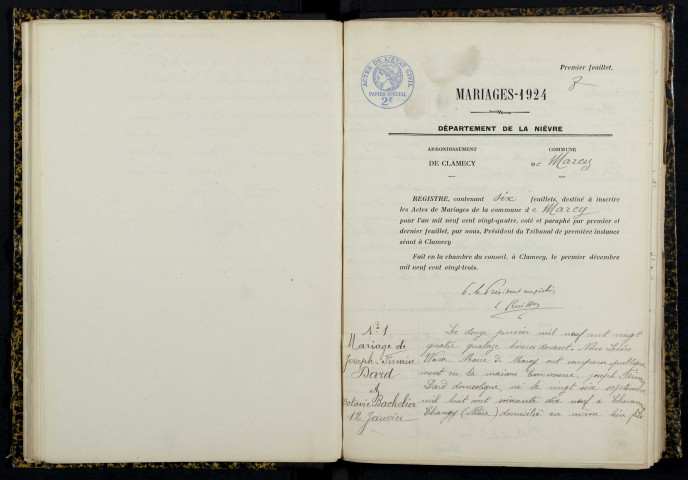 Premier feuillet.
ACTES DE L'ÉTAT CIVIL
PAPIER SPÉCIAL
2F
MARIAGES-1924
DÉPARTEMENT DE LA NIÈVRE
ARRONDISSEMENT
DE CLAMECY
COMMUNE
DE Marcy
REGISTRE, contenant six feuillets, destiné à inscrire
les Actes de Mariages de la commune de Marcy
pour l'an mil neuf cent vingt-quatre, coté et paraphé par premier et
dernier feuillet, par nous, Président du Tribunal de première instance
séant à Clamecy
Fait en la chambre du conseil, à Clamecy, le premier décembre
mil neuf cent vingt-trois.
No 1
Mariage de
Joseph Firmin
Dard
&
Octavie Bachelier
12 Janvier
Le douze janvier mil neuf cent vingt
quatre quatorze heures devant Nous
Maire de Marcy ont comparu publique
ment en la maison commune, Joseph Firmin
Dard domestique, né le vingt six septembre
mil huit cent soixante dix neuf à
Changy (Nièvre) domicilié au même lieu fils